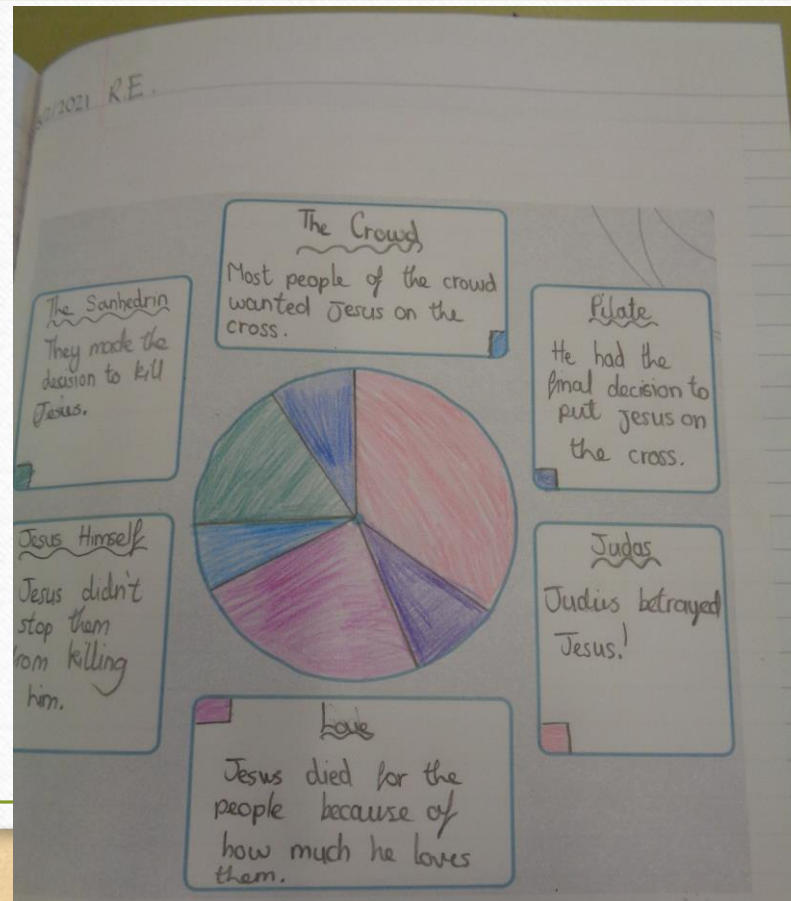 /2/2021 R.E.
The Crowd
Most people of the crowd
wanted Jesus on the
cross.
The Sanhedrin
They made the
decision to kill
Jesus.
Pilate
He had the
final decision to
put Jesus on
the cross.
Jesus Himself
Jesus didn't
stop them
from killing
him.
Judas
Judius betrayed
Jesus!
Love
Jesus died for the
people because of
how much he loves
them.